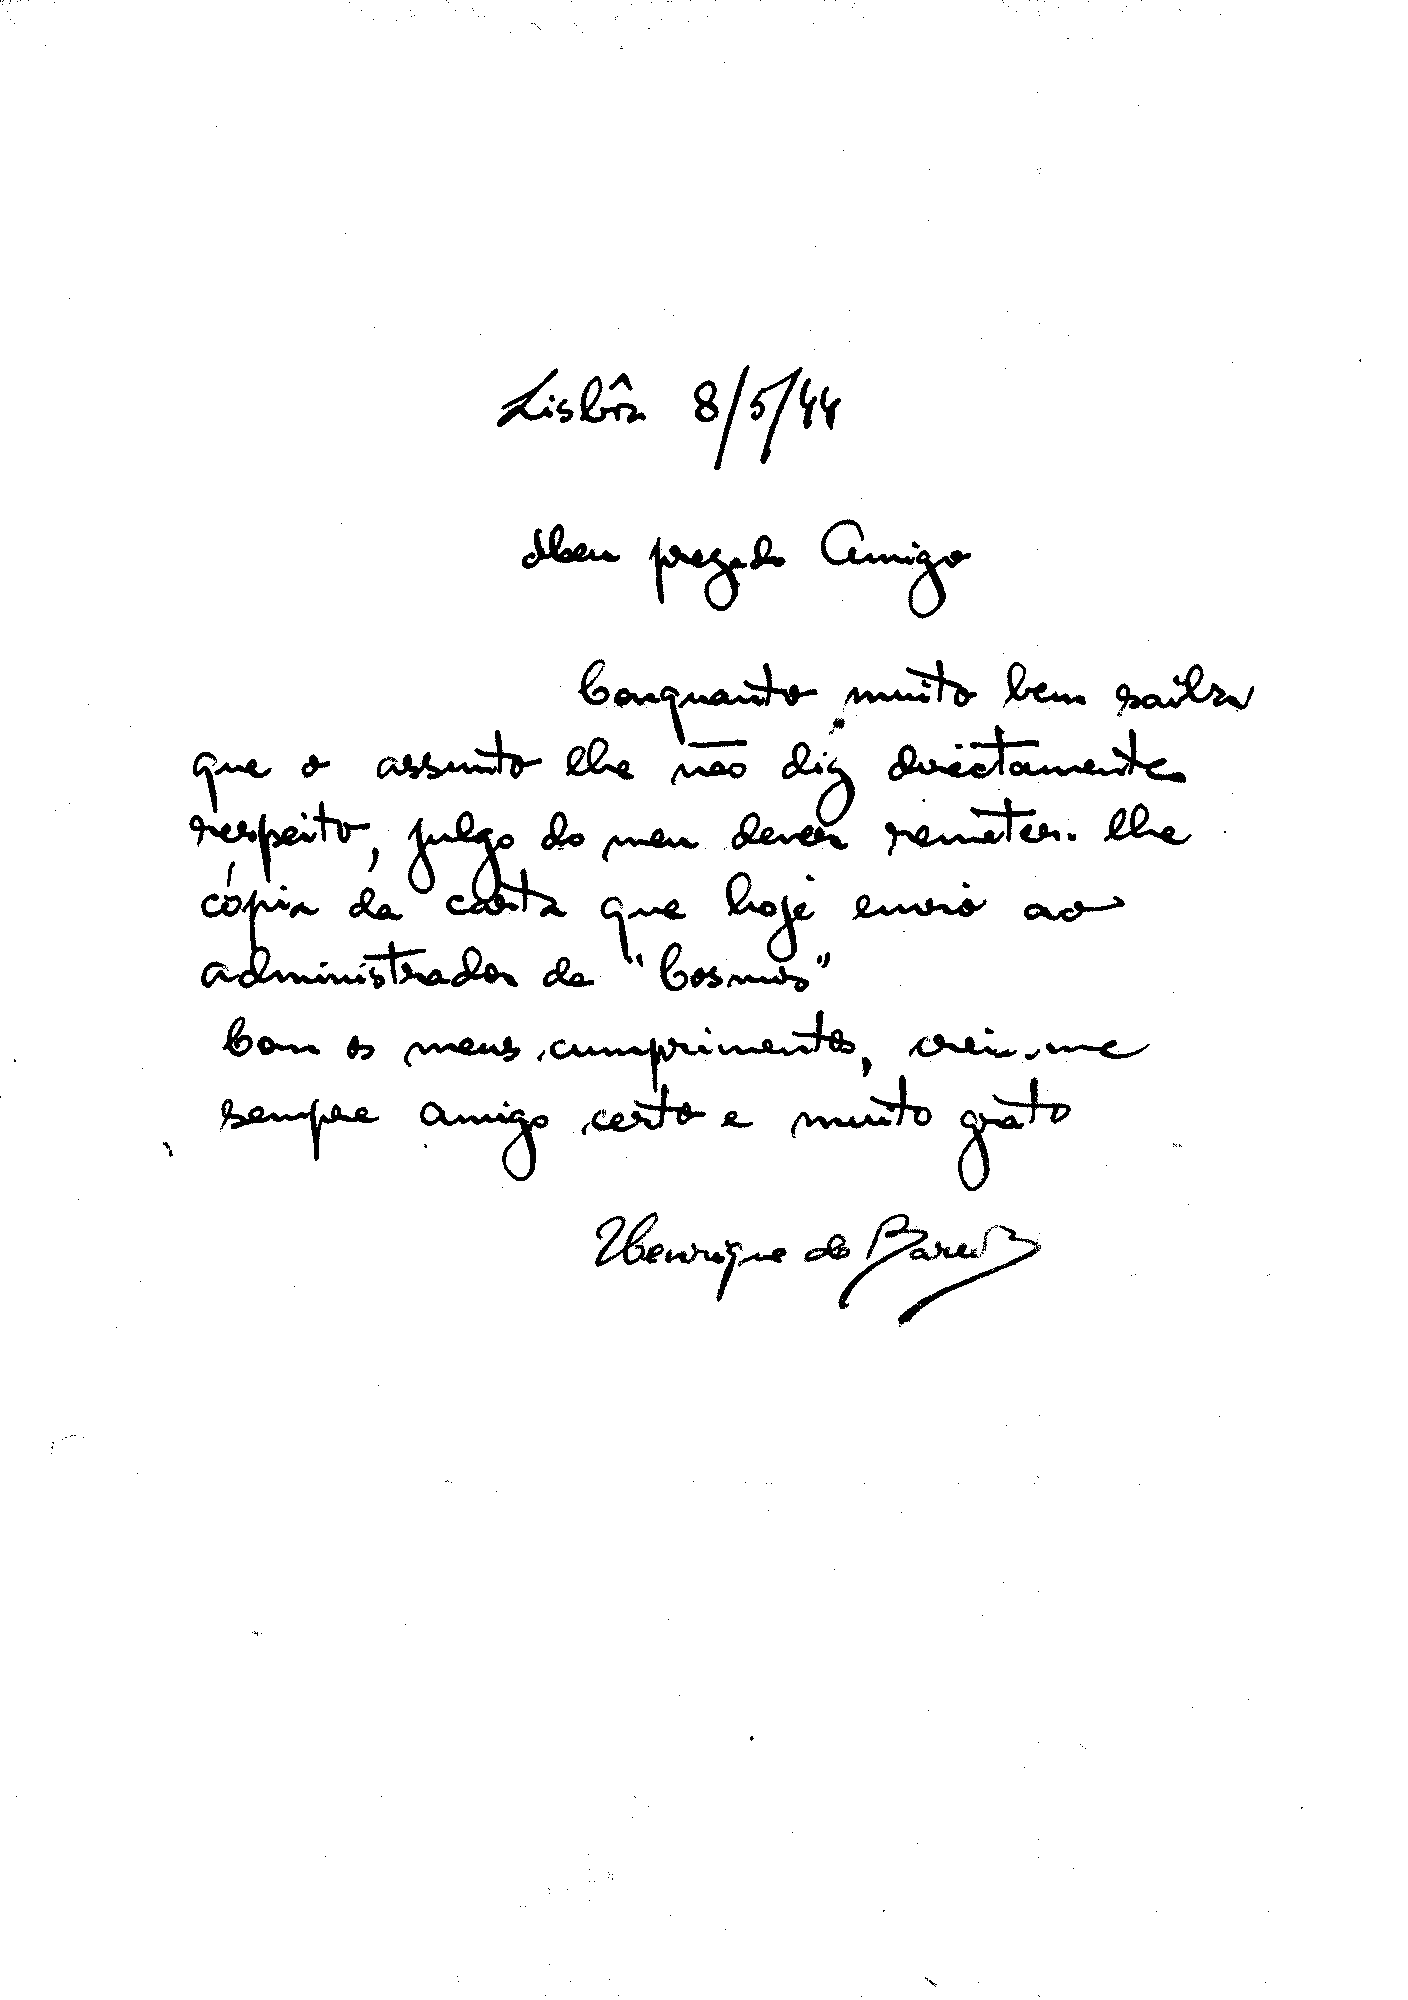 Lisbôa 8/5/44
Meu prezado Amigo
Conquanto muito bem saiba
que o assunto lhe não diz directamente
respeito, julgo do meu dever remeter-lhe
cópia da carta que hoje envio ao
administrador da "Cosmos"
Com os meus cumprimentos, creia-me
sempre amigo certo e muito grato
Henrique de Barros